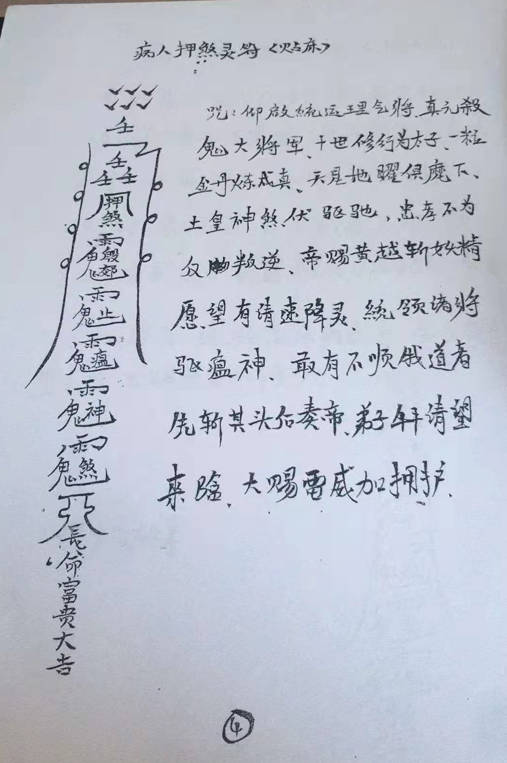 病人押煞灵符（贴床）
咒：仰啟統运理仝將、真元殺
鬼大將军、十世修行为太子、一粒
金丹炼成真、天見地曜俱魔下、
土皇神煞伏驱驰、忠孝不为
叛逆、帝赐黄越斩妖精
愿望有请速降灵、統领诸將
驱瘟神、敢有不顺俄道者
先斩其头后奏帝、弟子 请望
来臨、大赐雷威加拥护、
壬
壬
壬壬
押
煞
長
命
富
贵
大
吉
④